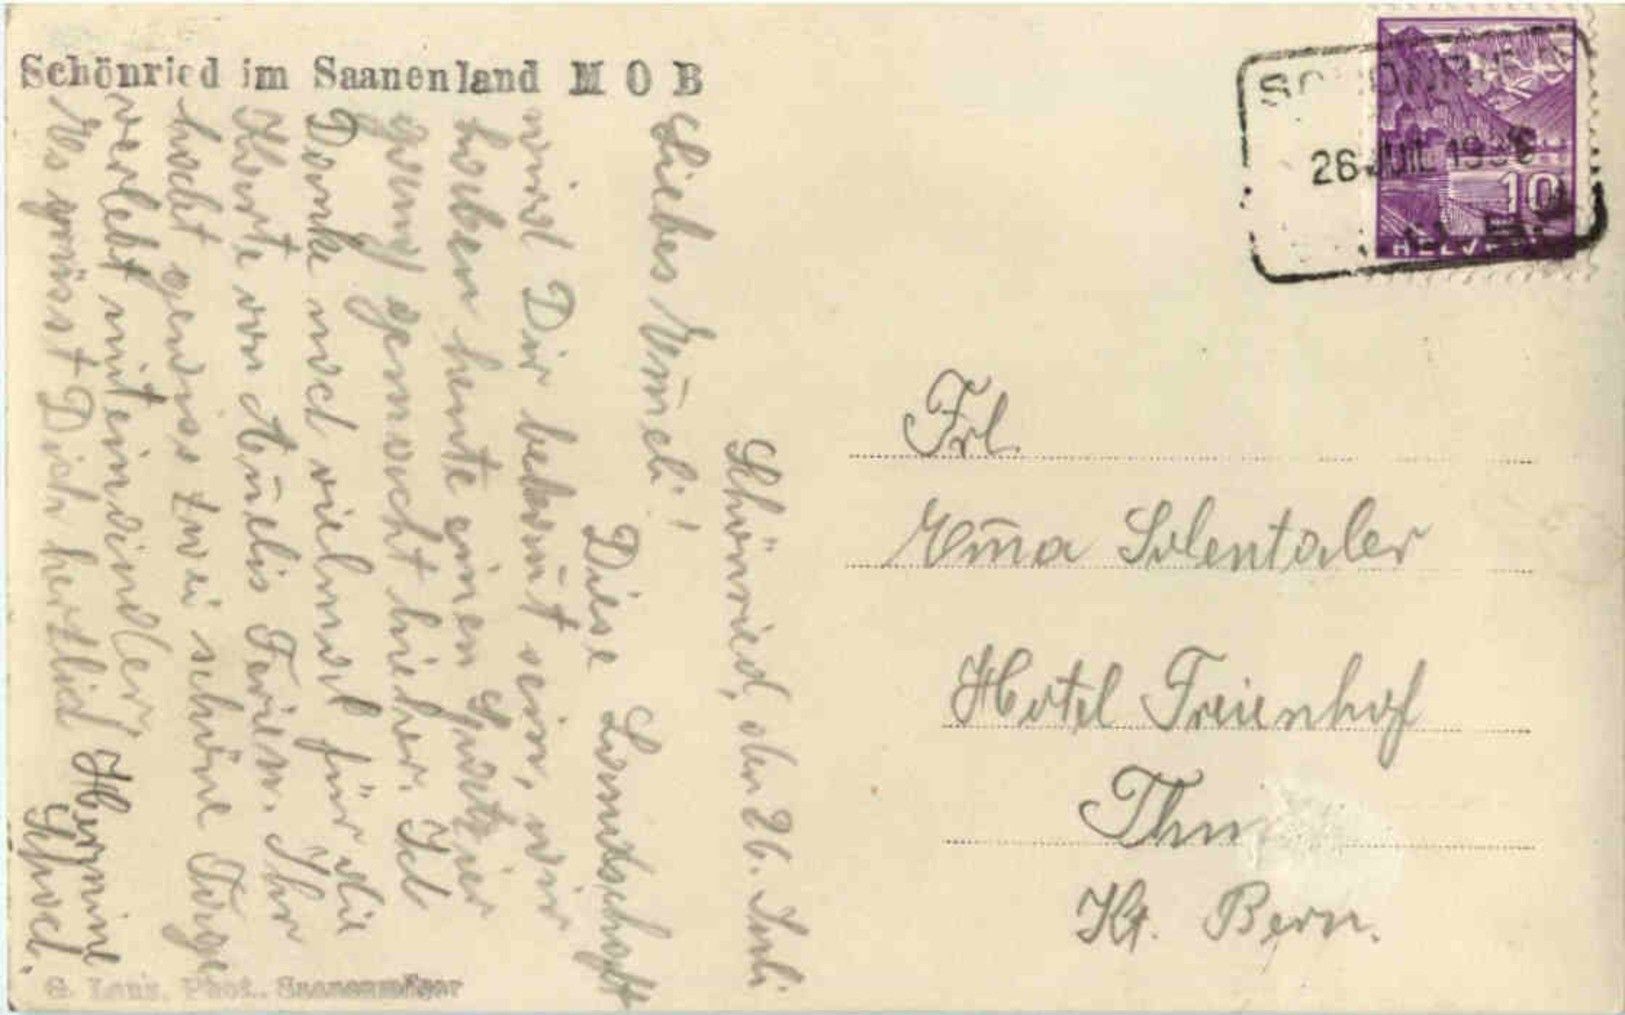 Schönried im Saanenland M O B
Schönried, den 26. Juli
Liebes Em̄eli!
Diese Landschaft
wird Dir bekan̄t sein, wir
haben heute einen Spatzier
gang gemacht hieher. Ich
Danke noch vielmal für die
Karte von An̄elis Ferien. Ihr
habt gewiss zwei schöne Tage
verlebt miteinander
Es grüsst Dich herzlich Hermine
G. Lanz, Phot., Saanenmöser
26 JUIL 193
10
HELVETIA
Frl.
Em̄a Solentaler
Hotel Freienhof
Thun
Kt. Bern.